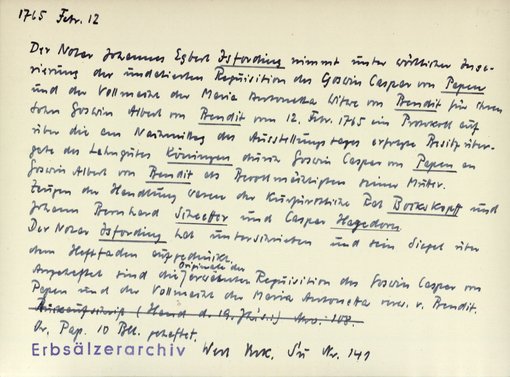 1765 Febr. 12
Der Notar Johannes Egbert Isfording nimmt unter wörtlicher Inse-
rierung der undatierten Requisition des Goswin Caspar von Papen
und der Vollmacht der Maria Antonetta Witwe von Bendit für ihren
Sohn Goswin Albert von Bendit vom 12. Febr. 1765 ein Protokoll auf
über die am Nachmittag des Ausstellungstages erfolgte Besitzüber-
gabe des Lehngutes Köningen durch Goswin Caspar von Papen an
Goswin Albert von Bendit als Bevollmächtigten seiner Mutter.
Zeugen der Handlung waren der Kurfürstliche Rat Borkskopff und
Johann Bernhard Schaeffer und Caspar Hagedorn.
Der Notar Isfording hat unterschrieben und sein Siegel über
dem Heftfaden aufgedrückt.
Angeheftet sind die Originale der erwähnten Requisition des Goswin Caspar von
Papen und der Vollmacht der Maria Antonetta verw. v. Bendit.
(Hand d. 19. Jhs.) Nro. 108.
Or. Pap. 10 Bll. geheftet.
Erbsälzerarchiv Werl Urk. Nr. 141